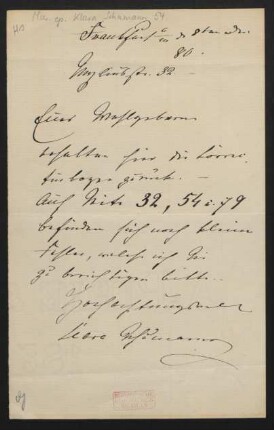 Mus. ep. Klara Schumann 54
Frankfurt a/M d. 8ten
80.
Myliusstr. 32
Euer Wohlgeboren
erhalten hier die Correc-
turbogen zurück. —
Auf Seite 32, 54 u. 79
befinden sich noch kleine
Fehler, welche ich Sie
zu berichtigen bitte.
Hochachtungsvoll
Clara Schumann